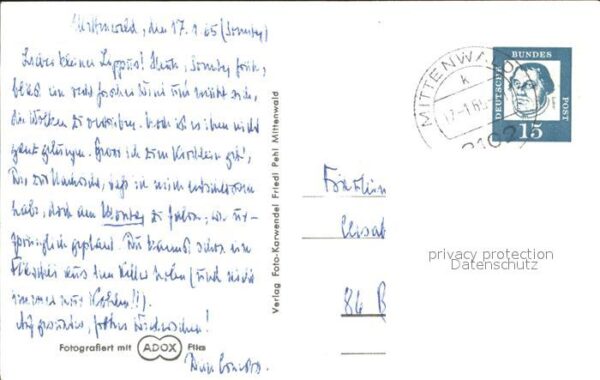 Mittenwald, den 17.1.65 (Sonntag)
Lieber kleiner
Heute, Sonntag früh,
bläst ein recht frischer Wind und müht sich,
die Wolken zu vertreiben. Noch ist es ihm nicht
ganz gelungen. Bevor ich zum
Dir zur Nachricht, daß ich mich entschlossen
habe, doch am Montag zu fahren, wie ur-
sprünglich geplant. Du kannst schon eine
Flasche aus dem Keller holen (und nicht
immer nur Kohlen!!).
Auf gesundes, frohes Wiedersehen!
Dein
Fotografiert mit ADOX Film
Verlag Foto-Karwendel Friedl Pehl Mittenwald
MITTENWALD
k
17.-1.65
8102
DEUTSCHE
BUNDES
POST
15
Fräulein
privacy protection
Datenschutz